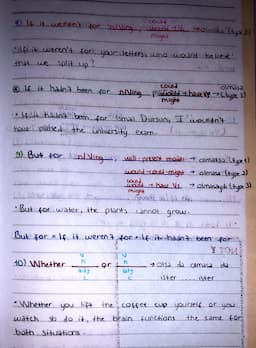 could
7) If it weren't for n/Ving, would + V1 → olmasa (type 2)
might
"If it weren't for your letters, who would believe
that we split up?
could olmasa
8) If it hadn't been for n/Ving would + have V3 → (type 3)
might
"If it hadn't been for Ismail Dursun, I wouldn't
have passed the university exam.
9) But for n/Ving, will - present modal → olmasa (type 1)
would - could - might → olmasa (type 2)
could
would + have V3 → olmasaydı (type 3)
might
"But for water, the plants cannot grow.
But for = If it weren't for = If it hadn't been for
10) Whether or → olsa da olmasa da
ister ..... ister
"Whether you lift the coffee cup yourself or you
watch so do it, the brain functions the same for
both situations.